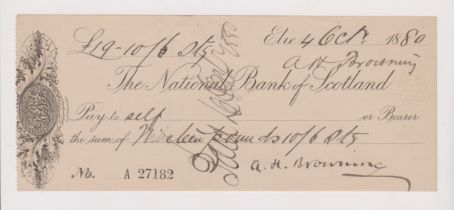 £19-10/6 Stg Elie 4 Octr. 1880
A H Browning
The National Bank of Scotland
Pay to self or Bearer
the sum of Nineteen pounds 10/6 Stg
A. H. Browning
No. A 27182